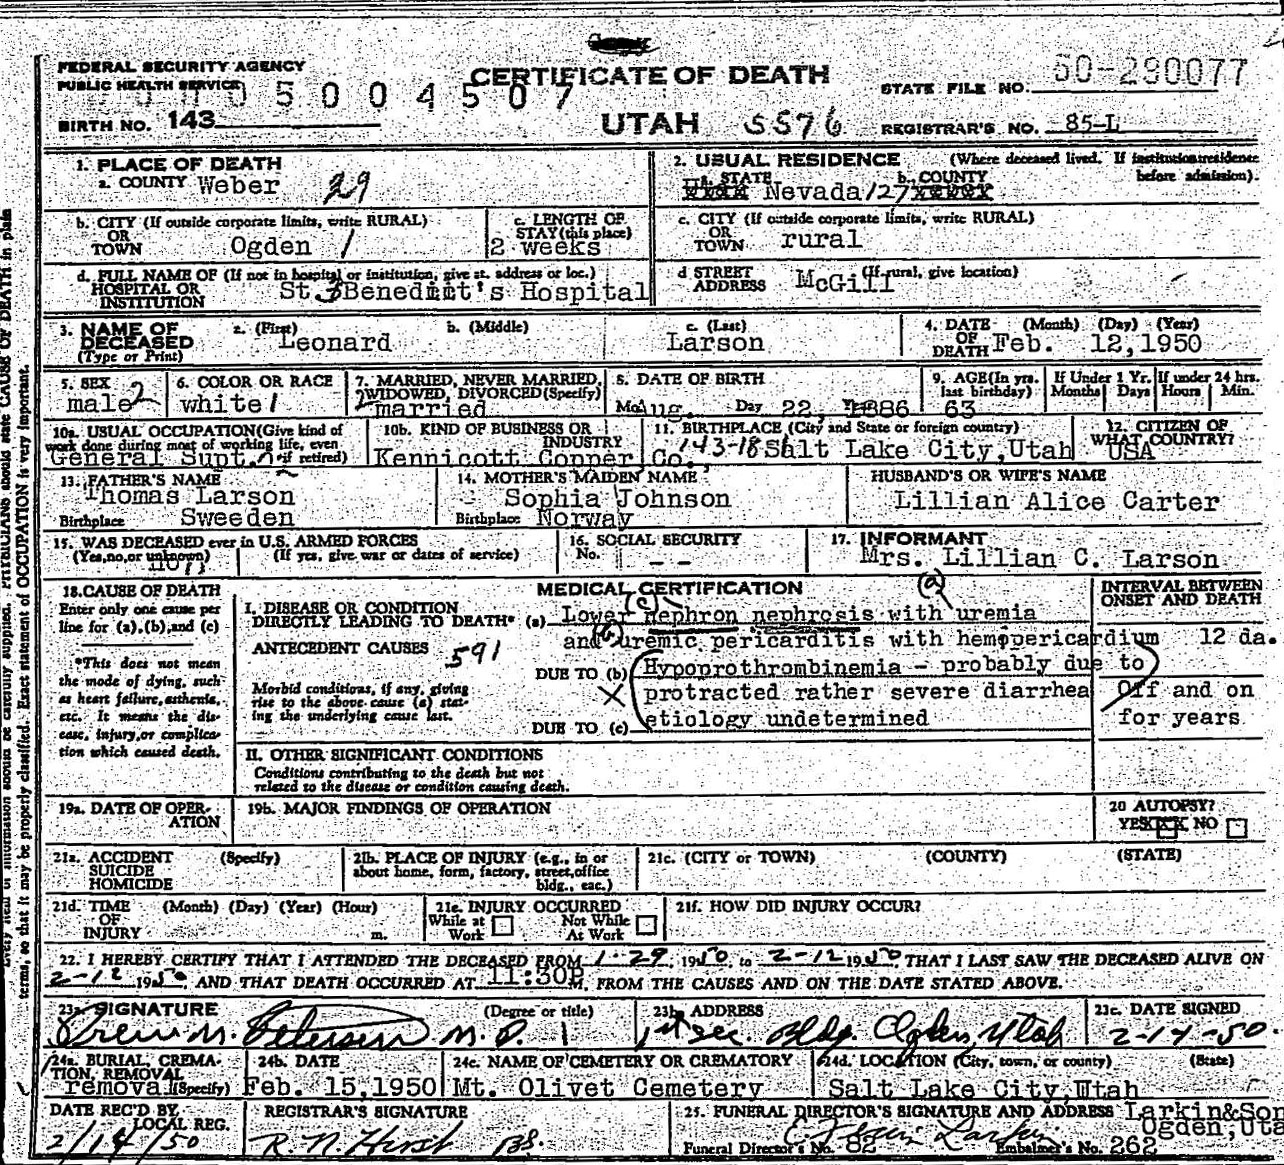 FEDERAL SECURITY AGENCY
PUBLIC HEALTH SERVICE
CERTIFICATE OF DEATH
STATE FILE NO. 50-290077
5004507
BIRTH NO. 143
UTAH 5576
REGISTRAR'S NO. 85-L
1. PLACE OF DEATH
a. COUNTY Weber 29
2. USUAL RESIDENCE (Where deceased lived. If institution:residence before admission).
a. STATE Nevada/27 b. COUNTY
b. CITY (If outside corporate limits, write RURAL)
OR
TOWN Ogden 1
c. LENGTH OF
STAY (this place)
2 weeks
c. CITY (If outside corporate limits, write RURAL)
OR
TOWN rural
d. FULL NAME OF (If not in hospital or institution, give st. address or loc.)
HOSPITAL OR
INSTITUTION St. Benedict's Hospital
d STREET (If rural, give location)
ADDRESS McGill
3. NAME OF
DECEASED
(Type or Print)
a. (First) Leonard
b. (Middle)
c. (Last) Larson
4. DATE (Month) (Day) (Year)
OF
DEATH Feb. 12,1950
5. SEX
male 2
6. COLOR OR RACE
white 1
7. MARRIED, NEVER MARRIED,
WIDOWED, DIVORCED (Specify)
2 married
8. DATE OF BIRTH
Mo. Aug. Day 22, 1886
9. AGE (In yrs.
last birthday)
63
If Under 1 Yr.
Months Days
If under 24 hrs.
Hours Min.
10a. USUAL OCCUPATION (Give kind of
work done during most of working life, even
if retired)
General Supt.
10b. KIND OF BUSINESS OR
INDUSTRY
Kennicott Copper Co.,
11. BIRTHPLACE (City and State or foreign country)
143-18 Salt Lake City,Utah
12. CITIZEN OF
WHAT COUNTRY?
USA
13. FATHER'S NAME
Thomas Larson
Birthplace Sweeden
14. MOTHER'S MAIDEN NAME
Sophia Johnson
Birthplace Norway
HUSBAND'S OR WIFE'S NAME
Lillian Alice Carter
15. WAS DECEASED ever in U.S. ARMED FORCES
(Yes,no,or unknown) (If yes, give war or dates of service)
16. SOCIAL SECURITY
No. - -
17. INFORMANT
Mrs. Lillian C. Larson
18. CAUSE OF DEATH
Enter only one cause per
line for (a),(b),and (c)
*This does not mean
the mode of dying, such
as heart failure, asthenia,
etc. It means the dis-
ease, injury, or complica-
tion which caused death.
MEDICAL CERTIFICATION
INTERVAL BETWEEN
ONSET AND DEATH
(a)
(c)
I. DISEASE OR CONDITION
DIRECTLY LEADING TO DEATH* (a) Lower nephron nephrosis with uremia
(b)
and uremic pericarditis with hemopericardium 12 da.
ANTECEDENT CAUSES 591
DUE TO (b) Hypoprothrombinemia - probably due to
Morbid conditions, if any, giving
rise to the above cause (a) stat-
ing the underlying cause last.
X protracted rather severe diarrhea Off and on
DUE TO (c) etiology undetermined for years
II. OTHER SIGNIFICANT CONDITIONS
Conditions contributing to the death but not
related to the disease or condition causing death.
19a. DATE OF OPER-
ATION
19b. MAJOR FINDINGS OF OPERATION
20 AUTOPSY?
YES XXX NO
21a. ACCIDENT (Specify)
SUICIDE
HOMICIDE
21b. PLACE OF INJURY (e.g., in or
about home, form, factory, street,office
bldg., eac.)
21c. (CITY or TOWN) (COUNTY) (STATE)
21d. TIME (Month) (Day) (Year) (Hour)
OF
INJURY m.
21e. INJURY OCCURRED
While at Work Not While At Work
21f. HOW DID INJURY OCCUR?
22. I HEREBY CERTIFY THAT I ATTENDED THE DECEASED FROM 1-29, 1950, to 2-12 1950 THAT I LAST SAW THE DECEASED ALIVE ON
2-12 1950, AND THAT DEATH OCCURRED AT 11:30P M, FROM THE CAUSES AND ON THE DATE STATED ABOVE.
23a. SIGNATURE (Degree or title)
Drew M. Petersen M.D. 1
23b. ADDRESS
1st Sec. Bldg. Ogden, Utah
23c. DATE SIGNED
2-14-50
24a. BURIAL, CREMA-
TION, REMOVAL
removal (Specify)
24b. DATE
Feb. 15,1950
24c. NAME OF CEMETERY OR CREMATORY
Mt. Olivet Cemetery
24d. LOCATION (City, town, or county) (State)
Salt Lake City,Utah
DATE REC'D BY
LOCAL REG.
2/14/50
REGISTRAR'S SIGNATURE
R. N. Hirst
25. FUNERAL DIRECTOR'S SIGNATURE AND ADDRESS Larkin&Son
Ogden,Uta
Larkin
Funeral Director's No. 82 Embalmer's No. 262
terms, so that it may be properly classified. Exact statement of OCCUPATION is very important.
PHYSICIANS should state CAUSE OF DEATH in plain